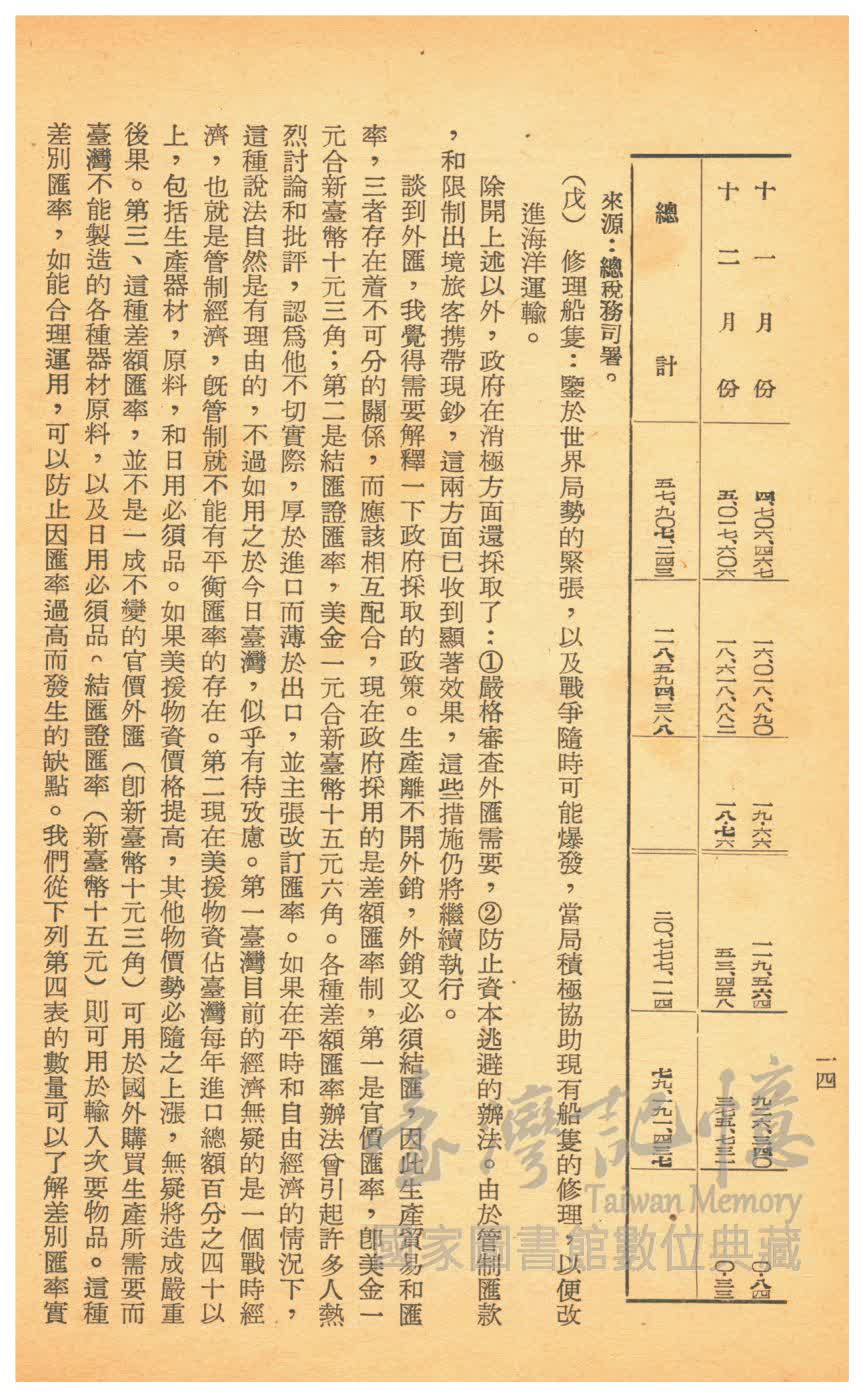 一四
十一月份　四、七〇六、四六七　一六、〇一八、八九〇　一九・六六　一一九、五六四　九二六、三四〇　〇・八四
十二月份　五、〇一七、六〇六　一八、六一八、八八二　一八・七六　五三、四五八　三七五、七三一　〇・三三
總計　五七、九〇七、二四三　二一八、五九四、三八八　二〇、七七七、一一四　七九、一九一、四三七
來源：總稅務司署。
(戊)　修理船隻：鑒於世界局勢的緊張，以及戰爭隨時可能爆發，當局積極協助現有船隻的修理，以便改
進海洋運輸。
除開上述以外，政府在消極方面還採取了：①嚴格審查外匯需要，②防止資本逃避的辦法。由於管制匯款
，和限制出境旅客攜帶現鈔，這兩方面已收到顯著效果，這些措施仍將繼續執行。
談到外匯，我覺得需要解釋一下政府採取的政策。生產離不開外銷，外銷又必須結匯，因此生產貿易和匯
率，三者存在着不可分的關係，而應該相互配合，現在政府採用的是差額匯率制，第一是官價匯率，卽美金一
元合新臺幣十元三角；第二是結匯證匯率，美金一元合新臺幣十五元六角。各種差額匯率辦法曾引起許多人熱
烈討論和批評，認爲他不切實際，厚於進口而薄於出口，並主張改訂匯率。如果在平時和自由經濟的情況下，
這種說法自然是有理由的，不過如用之於今日臺灣，似乎有待攷慮。第一臺灣目前的經濟無疑的是一個戰時經
濟，也就是管制經濟，旣管制就不能有平衡匯率的存在。第二現在美援物資佔臺灣每年進口總額百分之四十以
上，包括生產器材，原料，和日用必須品。如果美援物資價格提高，其他物價勢必隨之上漲，無疑將造成嚴重
後果。第三、這種差額匯率，並不是一成不變的官價外匯（卽新臺幣十元三角）可用於國外購買生產所需要而
臺灣不能製造的各種器材原料，以及日用必須品。結匯證匯率（新臺幣十五元）則可用於輸入次要物品。這種
差別匯率，如能合理運用，可以防止因匯率過高而發生的缺點。我們從下列第四表的數量可以了解差別匯率實
臺灣記憶
Taiwan Memory
國家圖書館數位典藏